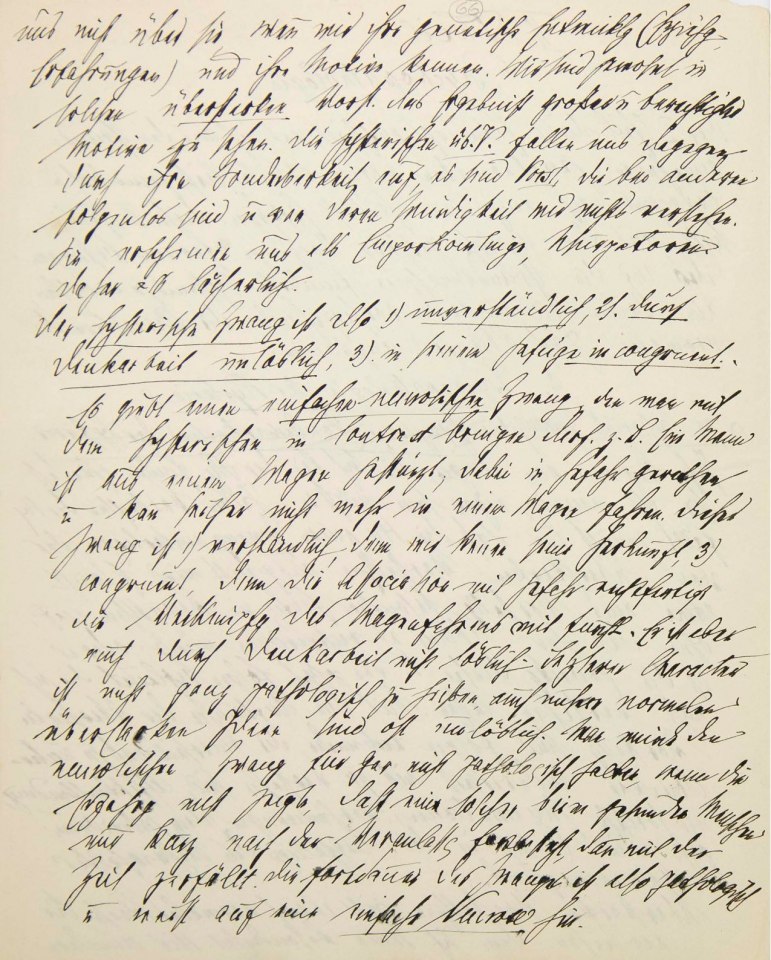 66
uns nicht über sie wenn wir ihre genetische Entwicklg (Erziehg,
Erfahrungen) und ihre Motive kennen. Wir sind gewohnt in
solchen überstarken Vorst. das Ergebniß großer u berechtigter
Motive zu sehen. Die hysterischen üb. V. fallen uns dagegen
durch ihre Sonderbarkeit auf, es sind Vorst, die bei anderen
folgenlos sind u von deren Würdigkeit wir nichts verstehen.
Sie erscheinen uns als Emporkömlinge, Usurpatoren
daher als lächerlich.
Der hysterische Zwang ist also 1) unverständlich, 2). durch
Denkarbeit unlöslich, 3). in seinem Gefüge incongruent.
Es giebt einen einfachen neurotischen Zwang, den man mit
dem hysterischen in Contrast bringen darf. z. B. Ein Mann
ist aus einem Wagen gestürzt, dabei in Gefahr gerathen
u kann seither nicht mehr in einem Wagen fahren. Dieser
Zwang ist 1) verständlich, denn wir kennen seine Herkunft, 3)
congruent, denn die Association mit Gefahr rechtfertigt
die Verknüpfg des Wagenfahrens mit Furcht. Er ist aber
auch durch Denkarbeit nicht löslich. Letzterer Charakter
ist nicht ganz pathologisch zu heißen, auch unsere normalen
überstarken Ideen sind oft unlöslich. Man würde den
neurotischen Zwang für gar nicht pathologisch halten, wenn die
Erfahrg nicht zeigte, daß eine solcher beim gesunden Menschen
nur kurz nach der Veranlassg fortbesteht, dann mit der
Zeit zerfällt. Die Fortdauer des Zwangs ist also pathologisch
u weist auf eine einfache Neurose hin.